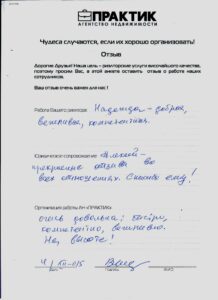 ПРАКТИК
АГЕНТСТВО НЕДВИЖИМОСТИ
Чудеса случаются, если их хорошо организовать!
Отзыв
Дорогие друзья! Наша цель – риэлторские услуги высочайшего качества,
поэтому просим Вас, в этой анкете оставить отзыв о работе наших
сотрудников.
Ваш отзыв очень важен для нас!
Работа Вашего риэлтора Надежда – добрая,
вежливая, компетентная.
Юридическое сопровождение Алексей –
прекрасно во
всех отношениях. Спасибо ему!
Организация работы АН «ПРАКТИК»
очень довольна: быстро,
компетентно, вежливо.
На высоте!